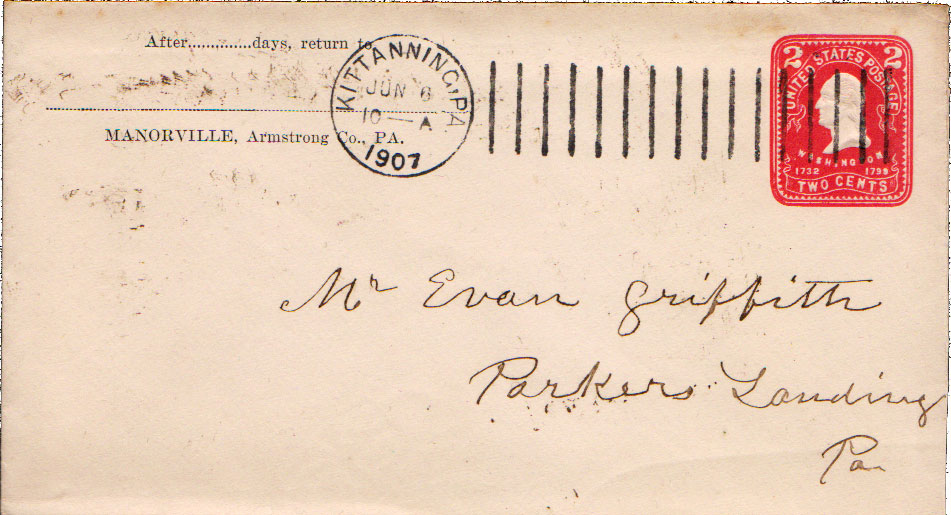 After..............days, return to
MANORVILLE, Armstrong Co., PA.
KITTANNING, PA
JUN 6
10 — A
1907
2 2
UNITED STATES POSTAGE
WASHINGTON
1732 1799
TWO CENTS
Mr Evan Griffith
Parkers Landing
Pa.